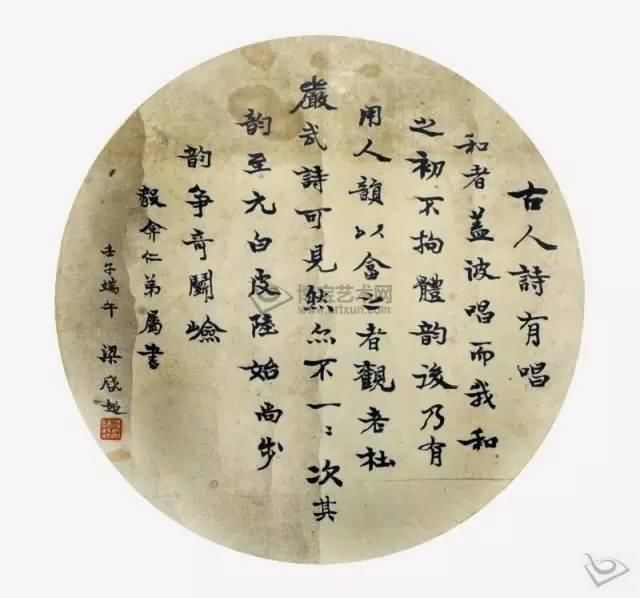 古人詩有唱
和者蓋彼唱而我和
之初不拘體韵後乃有
用人韻以會之者觀老杜
嚴武詩可見然亦不一〻次其
韵至元白皮陸始尚步
韵爭奇鬭嶮
毅弇仁弟屬書
壬子端午 梁啟超
博宝艺术网
www.artxun.com